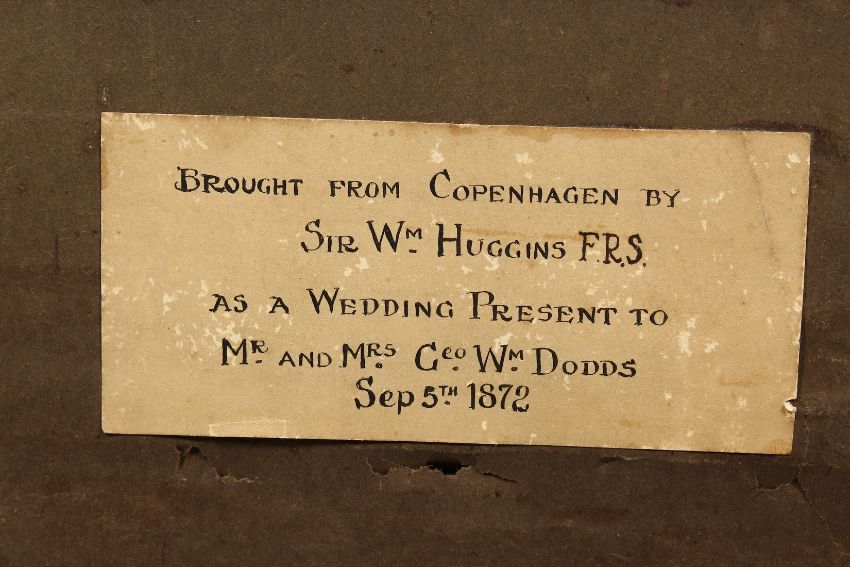 Brought from Copenhagen by
Sir Wm. Huggins F.R.S.
as a Wedding Present to
Mr. and Mrs. Geo. Wm. Dodds
Sep 5th. 1872